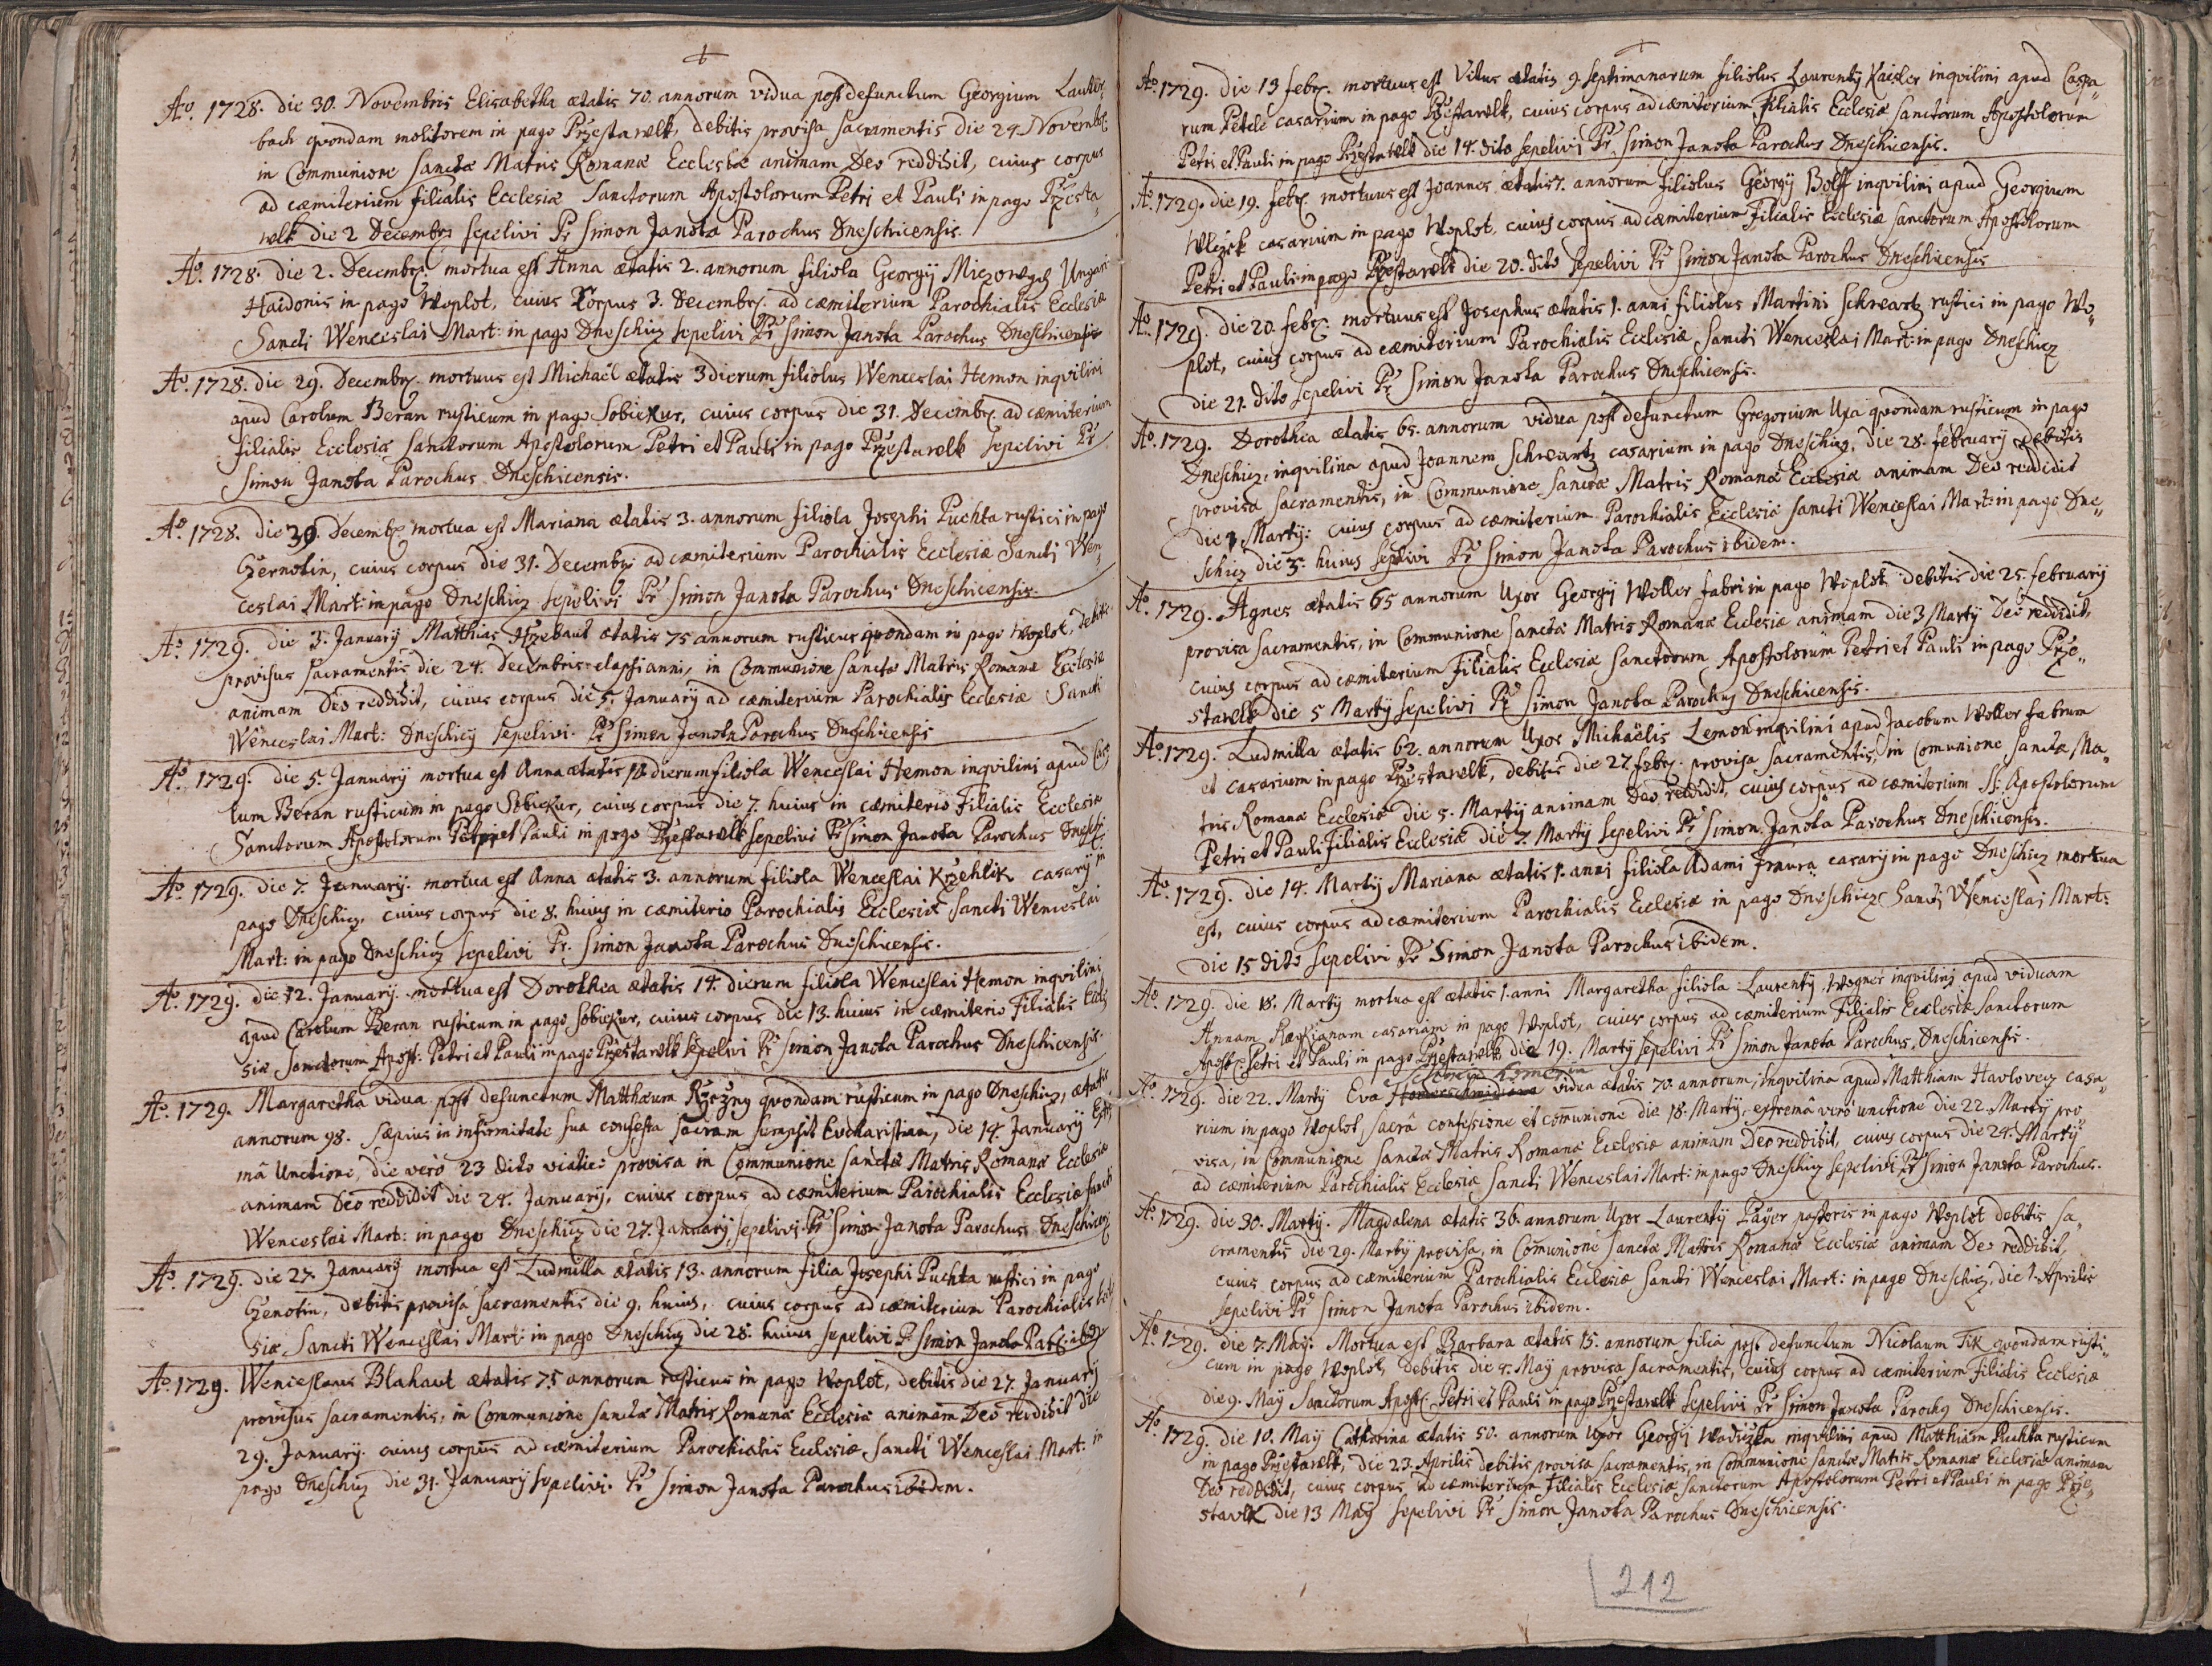 Aº. 1728. die 30. Novembris Elisabetha ætatis 70. annorum vidua post defunctum Georgium
bach qvondam molitorem in pago Przestawlk, debitis provisa sacramentis die 24. Novembr.
in Communione sanctæ Matris Romanæ Ecclesiæ animam Deo reddidit, cuius corpus
ad cæmiterium filialis Ecclesiæ Sanctorum Apostolorum Petri et Pauli in pago Przesta„
wlk die 2 Decembr. sepelivi Pr Simon Janota Parochus Dneschicensis.
Aº. 1728. die 2. Decembr. mortua est Anna ætatis 2. annorum filiola Georgij Ungari
Haidonis in pago Woplot, cuius Corpus 3. Decembr. ad cæmiterium Parochialis Ecclesiæ
Sancti Wenceslai Mart: in pago Dneschicz sepelivi Pr Simon Janota Parochus Dneschicensis
Aº. 1728. die 29. Decembr. mortuus est Michaël ætatis 3 dierum filiolus Wenceslai Hemon inqvilini
apud Carolum Beran rusticum in pago Sobiekur, cuius corpus die 31. Decembr. ad cæmiterium
filialis Ecclesiæ Sanctorum Apostolorum Petri et Pauli in pago Przestawlk sepelivi Pr
Simon Janota Parochus Dneschicensis.
Aº. 1728. die 30. Decembr. mortua est Mariana ætatis 3. annorum filiola Josephi Puchta rustici in pago
Czernotin, cuius corpus die 31. Decembr. ad cæmiterium Parochialis Ecclesiæ Sancti Wen„
ceslai Mart: in pago Dneschicz sepelivi Pr Simon Janota Parochus Dneschicensis.
Aº. 1729. die 3. January Matthias ætatis 75 annorum rusticus qvondam in pago Woplot, debitis
provisus sacramentis die 24. Decembris elapsi anni, in Communione sanctæ Matris Romanæ Ecclesiæ
animam Deo reddidit, cuius corpus die 5. January ad cæmiterium Parochialis Ecclesiæ Sancti
Wenceslai Mart: Dneschicz sepelivi. Pr Simon Janota Parochus Dneschicensis
Aº. 1729. die 5. January mortua est Anna ætatis dierum filiola Wenceslai Hemon inqvilini apud Caro
lum Beran rusticum in pago Sobiekur, cuius corpus die 7. huius in cæmiterio Filialis Ecclesiæ
Sanctorum Apostolorum Petri et Pauli in pago Przestawlk sepelivi Pr Simon Janota Parochus Dneschi.
Aº. 1729. die 7. January. mortua est Anna ætatis 3. annorum filiola Wenceslai Krzehlik casarij in
pago Dneschicz, cuius corpus die 8. huius in cæmiterio Parochialis Ecclesiæ Sancti Wenceslai
Mart: in pago Dneschicz sepelivi Pr. Simon Janota Parochus Dneschicensis.
Aº. 1729. die 12. January. mortua est Dorothea ætatis 14. dierum filiola Wenceslai Hemon inqvilini
apud Carolum Beran rusticum in pago Sobiekur, cuius corpus die 13. huius in cæmiterio Filialis Eccle
siæ Sanctorum Apost: Petri et Pauli in pago Przestawlk sepelivi Pr Simon Janota Parochus Dneschicensis.
Aº. 1729. Margaretha vidua post defunctum Matthæum qvondam rusticum in pago Dneschicz, ætatis
annorum 98. sæpius in infirmitate sua confessa sacram sumpsit Eucharistiam, die 14. January Extre
mâ Unctione, die verò 23 dito viatico provisa in Communione sanctæ Matris Romanæ Ecclesiæ
animam Deo reddidit die 24. January, cuius corpus ad cæmiterium Parochialis Ecclesiæ Sancti
Wenceslai Mart: in pago Dneschicz die 27. January, sepelivi Pr Simon Janota Parochus
Aº. 1729. die 27. January mortua est Ludmilla ætatis 13. annorum filia Josephi Puchta rustici in pago
Czenotin, debitis provisa sacramentis die 9. huius, cuius corpus ad cæmiterium Parochialis Eccle
siæ Sancti Wenceslai Mart: in pago Dneschicz die 28. huius sepelivi Pr Simon Janota
Aº. 1729. Wenceslaus Blahaut ætatis 75 annorum rusticus in pago Woplot, debitis die 27. January
provisus sacramentis, in Communione sanctæ Matris Romanæ Ecclesiæ animam Deo reddidit die
29. January. cuius corpus ad cæmiterium Parochialis Ecclesiæ Sancti Wenceslai Mart: in
pago Dneschicz die 31. January sepelivi. Pr Simon Janota Parochus ibidem.
Aº. 1729. die 13 febr. mortuus est Vitus ætatis 9 septimanarum filiolus Laurenty Kaisler inqvilini apud Caspa„
rum Petele casarium in pago Przestawlk, cuius corpus ad cæmiterium Filialis Ecclesiæ Sanctorum Apostolorum
Petri et Pauli in pago Przestawlk die 14. dito sepelivi Pr Simon Janota Parochus Dneschicensis.
Aº. 1729. die 19. febr. mortuus est Joannes ætatis 7. annorum filiolus Georgij Bolff inqvilini apud Georgium
Wlczek casarium in pago Woplot, cuius corpus ad cæmiterium Filialis Ecclesiæ Sanctorum Apostolorum
Petri et Pauli in pago Przestawlk die 20. dito sepelivi Pr Simon Janota Parochus Dneschicensis
Aº. 1729. die 20. febr. mortuus est Josephus ætatis 1. anni filiolus Martini Schwartz rustici in pago Wo„
plot, cuius corpus ad cæmiterium Parochialis Ecclesiæ Sancti Wenceslai Mart: in pago Dneschicz
die 21. dito sepelivi Pr Simon Janota Parochus Dneschicensis.
Aº. 1729. Dorothea ætatis 65. annorum vidua post defunctum Gregorium qvondam rusticum in pago
Dneschicz, inqvilina apud Joannem Schwartz casarium in pago Dneschicz, die 28. february debitis
provisa sacramentis, in Communione sanctæ Matris Romanæ Ecclesiæ animam Deo reddidit
die 1. Marty: cuius corpus ad cæmiterium Parochialis Ecclesiæ Sancti Wenceslai Mart: in pago Dne„
schicz die 3. huius sepelivi Pr Simon Janota Parochus ibidem.
Aº. 1729. Agnes ætatis 65 annorum Uxor Georgij Woller fabri in pago Woplot debitis die 25. february
provisa sacramentis, in Communione sanctæ Matris Romanæ Ecclesiæ animam die 3 Marty Deo reddidit
cuius corpus ad cæmiterium Filialis Ecclesiæ Sanctorum Apostolorum Petri et Pauli in pago Prze„
stawlk die 5 Marty sepelivi Pr Simon Janota Parochus Dneschicensis.
Aº. 1729. Ludmilla ætatis 62. annorum Uxor Michaëlis Lemon inqvilini apud Jacobum Woller fabrum
et casarium in pago Przestawlk, debitis die 27 febr. provisa sacramentis, in Comunione sanctæ Ma„
tris Romanæ Ecclesiæ die 5. Marty animam Deo reddidit, cuius corpus ad cæmiterium SS: Apostolorum
Petri et Pauli Filialis Ecclesiæ die 7. Marty sepelivi Pr Simon Janota Parochus Dneschicensis.
Aº. 1729. die 14. Marty Mariana ætatis 1. anni filiola Adami casarij in pago Dneschicz mortua
est, cuius corpus ad cæmiterium Parochialis Ecclesiæ in pago Dneschicz Sancti Wenceslai Mart:
die 15 dito sepelivi Pr Simon Janota Parochus ibidem.
Aº. 1729. die 18. Marty mortua est ætatis 1. anni Margaretha filiola Laurenty Wogner inqvilini apud viduam
Annam casariam in pago Woplot, cuius corpus ad cæmiterium Filialis Ecclesiæ Sanctorum
Apost. Petri et Pauli in pago Przestawlk die 19. Marty sepelivi Pr Simon Janota Parochus Dneschicensis.
Aº. 1729. die 22. Marty Eva vidua ætatis 70. annorum, inqvilina apud Matthiam Havlovecz casa„
rium in pago Woplot sacrâ confessione et comunione die 18. Marty, extremâ verò unctione die 22. Marty pro
visa, in Communione sanctæ Matris Romanæ Ecclesiæ animam Deo reddidit, cuius corpus die 24. Marty
ad cæmiterium Parochialis Ecclesiæ Sancti Wenceslai Mart: in pago Dneschicz sepelivi Pr Simon Janota Parochus.
Aº. 1729. die 30. Marty. Magdalena ætatis 36. annorum Uxor Laurenty Payer pastoris in pago Woplot debitis sa„
cramentis die 29. Marty provisa, in Comunione sanctæ Matris Romanæ Ecclesiæ animam Deo reddidit,
cuius corpus ad cæmiterium Parochialis Ecclesiæ Sancti Wenceslai Mart: in pago Dneschicz, die 1. Aprilis
sepelivi Pr Simon Janota Parochus ibidem.
Aº. 1729. die 7. May. Mortua est Barbara ætatis 15. annorum filia post defunctum Nicolaum Fik qvondam rusti„
cum in pago Woplot, debitis die 4. May provisa sacramentis, cuius corpus ad cæmiterium Filialis Ecclesiæ
die 9. May Sanctorum Apost. Petri et Pauli in pago Przestawlk sepelivi Pr Simon Janota Parochus Dneschicensis.
Aº. 1729. die 10. May Catharina ætatis 50. annorum Uxor Georgij inqvilini apud Matthiam Puchta rusticum
in pago Przestawlk, die 23. Aprilis debitis provisa sacramentis, in Communione sanctæ Matris Romanæ Ecclesiæ animam
Deo reddidit, cuius corpus ad cæmiterium Filialis Ecclesiæ Sanctorum Apostolorum Petri et Pauli in pago Prze„
stavlk die 13 May sepelivi Pr Simon Janota Parochus Dneschicensis.
212